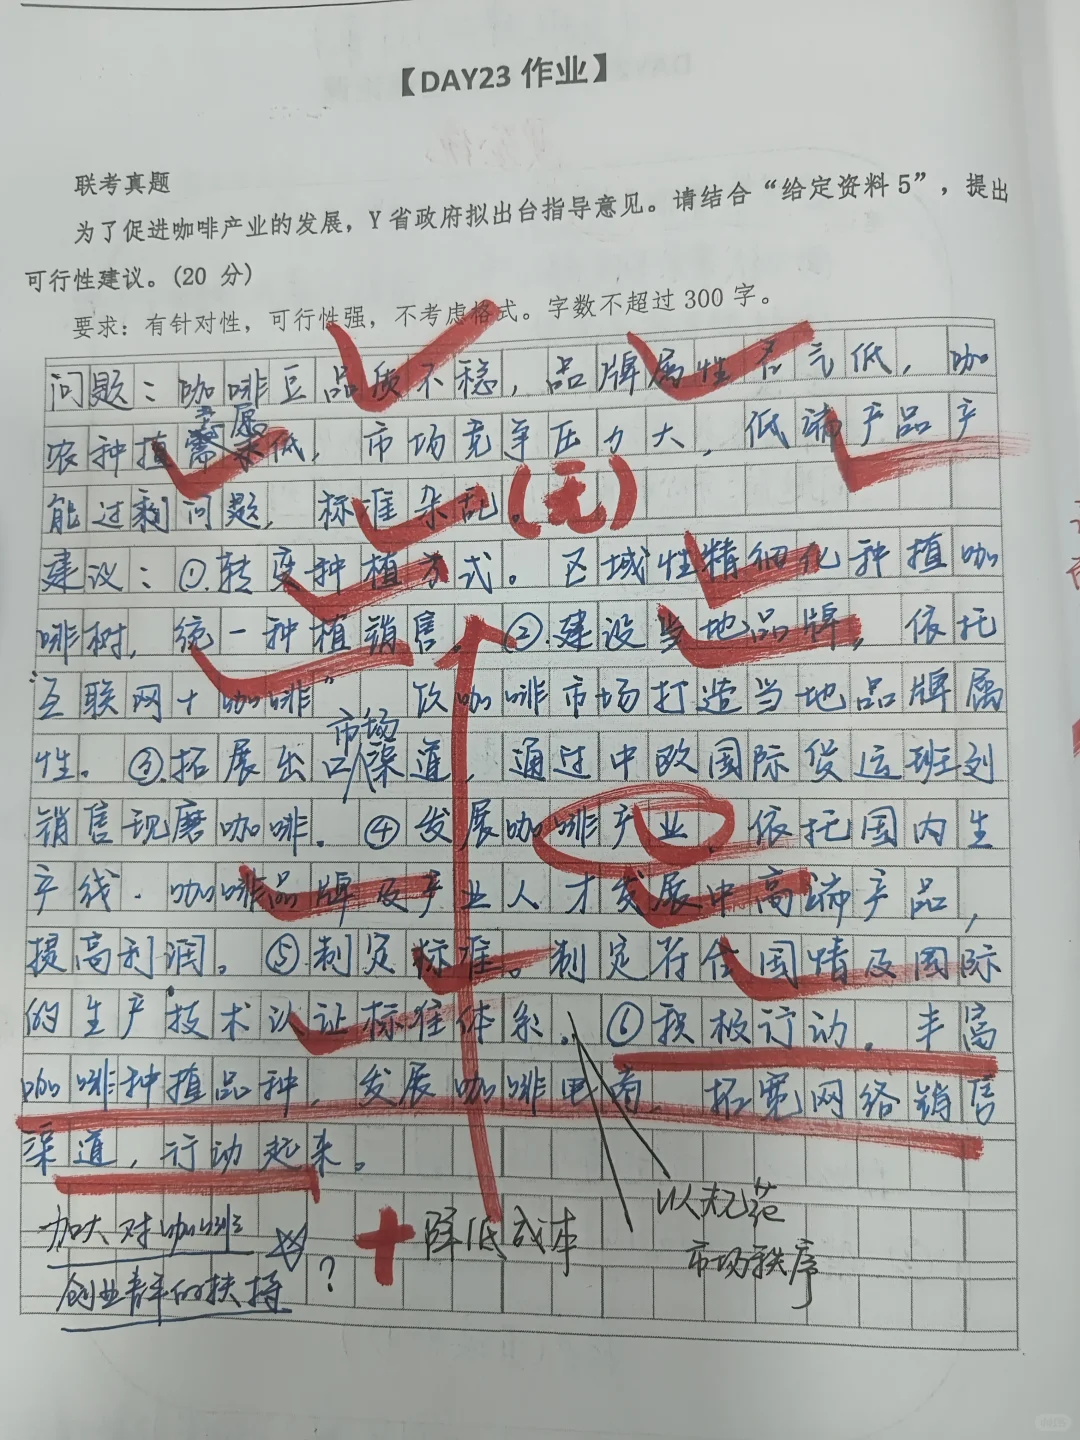 【DAY23 作业】
联考真题
为了促进咖啡产业的发展，Y 省政府拟出台指导意见。请结合“给定资料 5”，提出
可行性建议。(20 分)
要求：有针对性，可行性强，不考虑格式。字数不超过 300 字。
问题：咖啡豆品质不稳，品牌属性名气低，咖
意愿
农种植需求低，市场竞争压力大，低端产品产
能过剩问题，标准杂乱。(无)
建议：①.转变种植方式。区域性精细化种植咖
啡树，统一种植销售。②.建设当地品牌，依托
“互联网＋咖啡”饮咖啡市场打造当地品牌属
市场
性。③.拓展出口渠道，通过中欧国际货运班列
销售现磨咖啡。④发展咖啡产业，依托国内生
产线．咖啡品牌及产业人才发展中高端产品，
提高利润。⑤制定标准。制定符合国情及国际
的生产技术认证标准体系。⑥积极订动。丰富
咖啡种植品种，发展咖啡电商，拓宽网络销售
渠道，行动起来。
加大对咖啡
创业者的扶持
?
+
降低成本
以规范
市场秩序